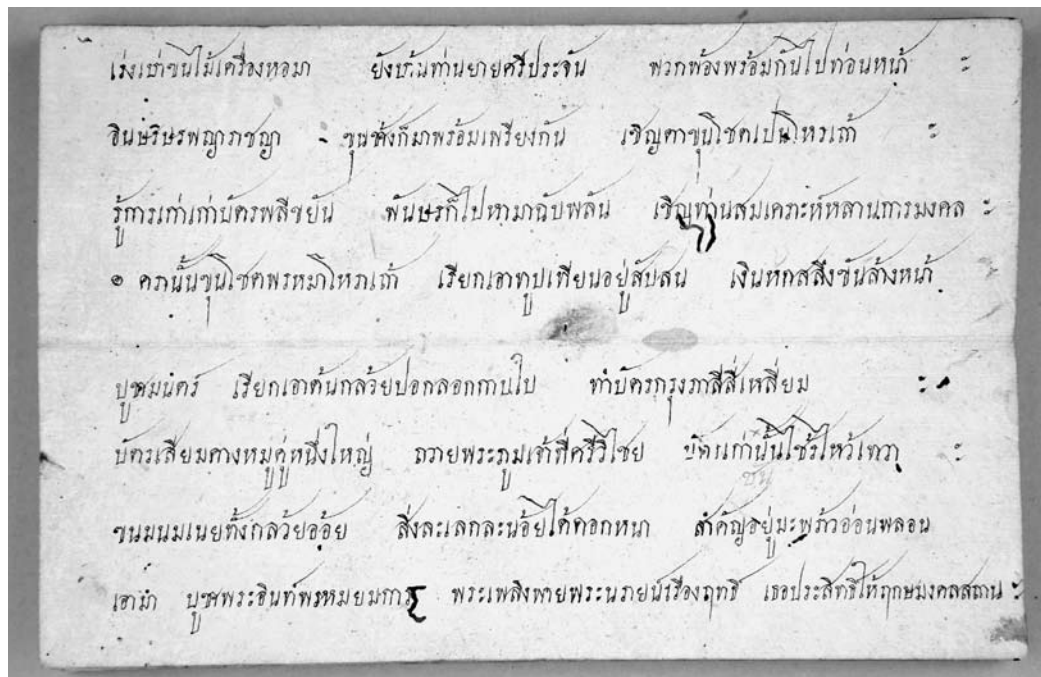 เร่งเข่าขนไม้เครื่องหอมา ยังบ้านท่านยายศรีประจัน พวกพ้องพร้อมกันไปก่อนหน้า ฯ
อินษริษรพญาราชญา ขุนช้างก็มาพร้อมเพรียงกัน เชิญตาขุนโชตเปนโหรเถ้า ฯ
รู้การเก่าเก่าบัตรพลีขยัน พันษรก็ไปหามาฉับพลัน เชิญท่านสมเคราะห์หลานการมงคล ฯ
๏ ครานั้นขุนโชตพรหมาโหรเถ้า เรียกเอาทูปเทียนอยู่สับสน เงินหกสลึงขันล้างหน้า
บูชามนตร์ เรียกเอาต้นกล้วยปอกลอกกาบใบ ทำบัตรกรุงภาลีสี่เหลี่ยม ฯ
บัตรเสียมคางหมูคู่หนึ่งใหญ่ ถวายพระภูมเจ้าที่ศรีวิไชย บัตรเก่านั้นใช้ร์ไหว้เทวา ฯ
ขนมนมเนยทั้งกล้วยอ้อย สิ่งละเลกละน้อยใต้ดอกหนา สำคัญอยู่มะพร้าวอ่อนพลอน
เอามา บูชาพระอินท์พรหมยมการ พระเพลิงพายพระนรายน์เรืองฤทธิ์ เธอประสิทธิ์ให้ฤกษมงคลสถาน ฯ